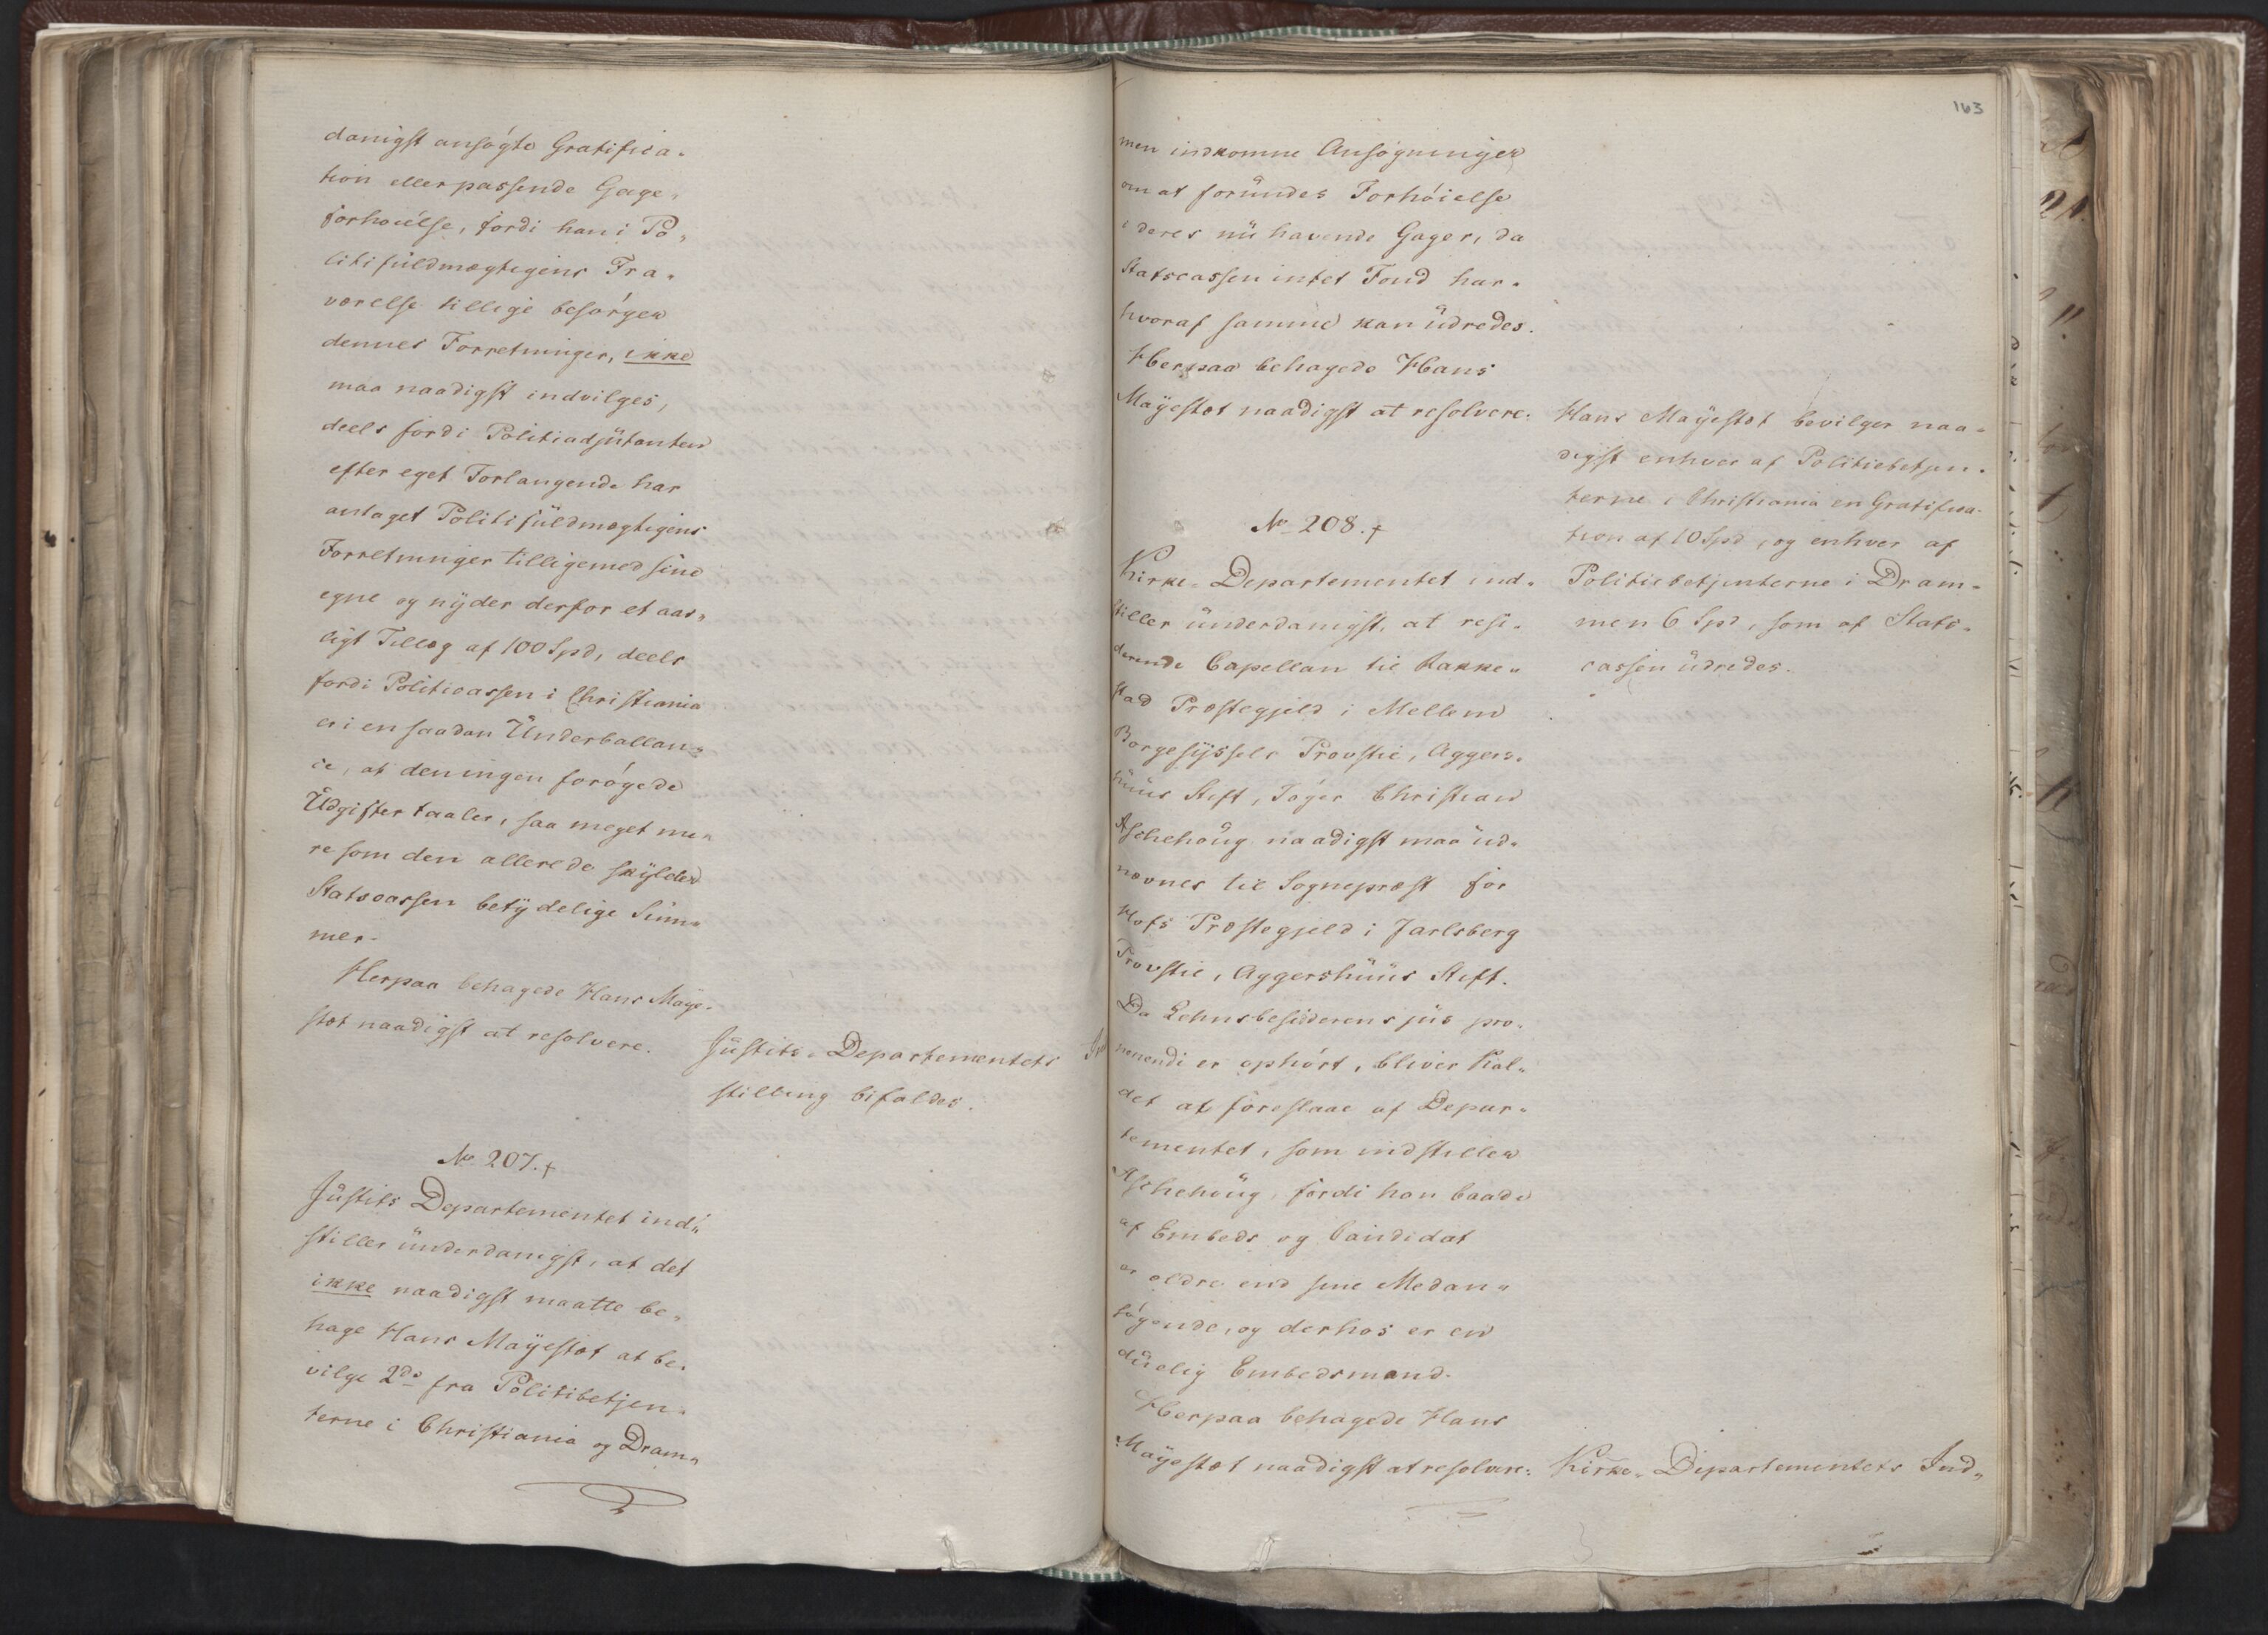 danigst ansøgte Gratifica„
tion eller passende Gage„
forhøielse, fordi han i Po„
litifuldmægtigens Fra„
værelse tillige besørger
dennes Forretninger, ikke
maa naadigst indvilges,
deels fordi Politiadjutanten
efter eget Forlangende har
antaget Politifuldmægtigens
Forretninger tilligemed sine
egne og nyder derfor et aar„
ligt Tillæg af 100 Spd, deels
fordi Politicassen i Christiania
er i en saadan Underballan„
ce, at den ingen forøgede
Udgifter taaler, saa meget me„
re som den allerede skylder
Statscassen betydelige Sum„
mer.
Herpaa behagede Hans Maye„
stæt naadigst at resolvere.
Justits„ Departementets Ind
stilling bifaldes.
No 207. +
Justits Departementet ind„
stiller underdanigst, at det
ikke naadigst maatte be„
hage Hans Mayestæt at be„
vilge 2de fra Politibetjen„
terne i Christiania og Dram„
163
men indkomne Ansøgninger
om at forundes Forhøielse
i deres nu havende Gager, da
Statscassen intet Fond har„
hvoraf samme kan udredes.
Herpaa behagede Hans
Mayestæt naadigst at resolvere:
Hans Mayestæt bevilger naa„
digst enhver af Politiebetjen„
terne i Christiania en Gratifica„
tion af 10 Spd, og enhver af
Politiebetjenterne i Dram„
men 6 Spd, som af Stats„
cassen udredes.
No 208. +
Kirke„ Departementet ind„
stiller underdanigst, at resi„
derende Capellan til Rakke„
stad Præstegjeld i Mellem
Borgesyssels Provstie, Aggers„
huus Stift, Jøger Christian
Aschehoug naadigst maa ud„
nævnes til Sognepræst for
Hofs Præstegjeld i Jarlsberg
Provstie, Aggershuus Stift.
Da Lehnsbesidderens jus pro„
nenendi er ophørt, bliver Kal„
det at foreslaae af Depar„
tementet, som indstiller
Aschehoug, fordi han baade
af Embeds og Candidat
er ældre end sine Medan„
søgende, og derhos er en
duelig Embedsmand.
Herpaa behagede Hans
Mayestæt naadigst at resolvere:
Kirke„ Departementets Ind„